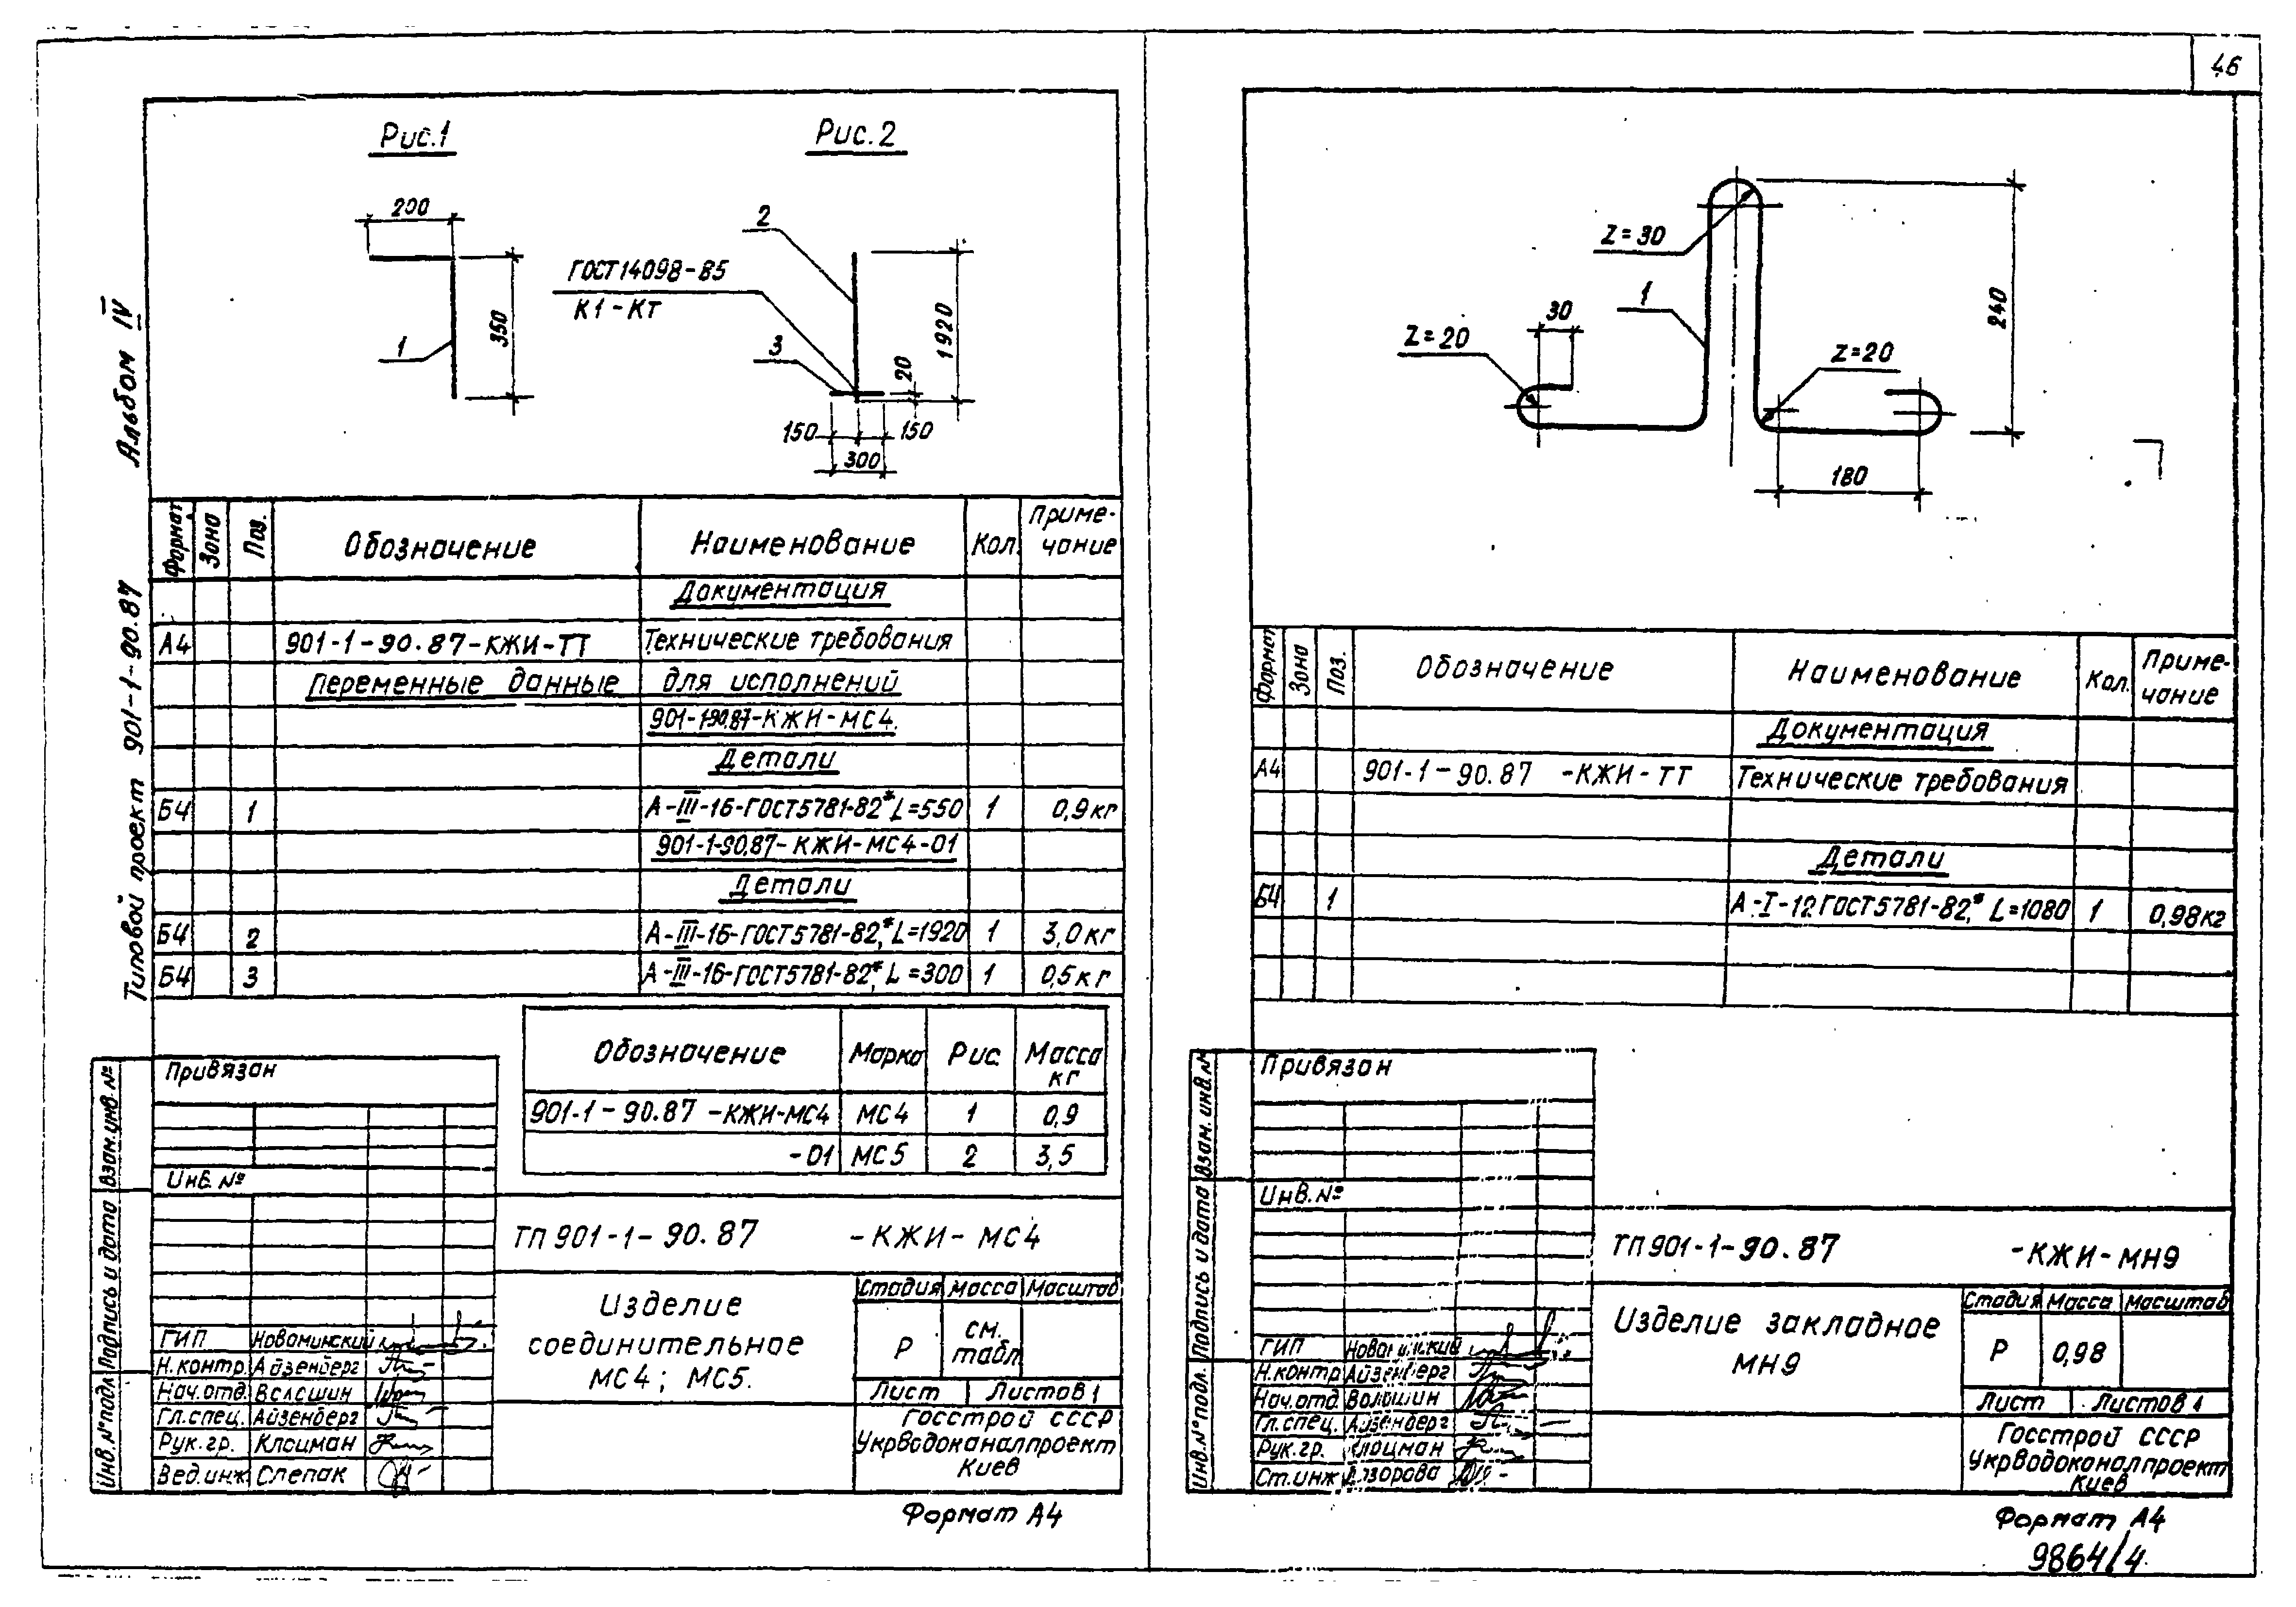 46
Альбом IV
Типовой проект 901-1-90.87
Рис.1
200
350
1
Рис.2
2
ГОСТ14098-85
К1-Кт
3
1920
20
150 150
300
Формат Зона Поз. Обозначение Наименование Кол. Приме-
чание
Документация
А4 901-1-90.87-КЖИ-ТТ Технические требования
Переменные данные для исполнений
901-1-90.87-КЖИ-МС4.
Детали
Б4 1 А-III-16-ГОСТ5781-82* L=550 1 0,9кг
901-1-90.87-КЖИ-МС4-01
Детали
Б4 2 А-III-16-ГОСТ5781-82,* L=1920 1 3,0кг
Б4 3 А-III-16-ГОСТ5781-82,* L=300 1 0,5кг
Обозначение Марка Рис. Масса
кг
901-1-90.87-КЖИ-МС4 МС4 1 0,9
-01 МС5 2 3,5
Взам.инв.№
Подпись и дата
Инв.№подл.
Привязан
Инв.№
ТП 901-1-90.87 -КЖИ-МС4
Изделие
соединительное
МС4; МС5.
Стадия Масса Масштаб
Р см.
табл.
Лист Листов 1
ГИП Новоминский
Н.контр. Айзенберг
Нач.отд. Волошин
Гл.спец. Айзенберг
Рук.гр. Клоцман
Вед.инж. Слепак
Госстрой СССР
Укрводоканалпроект
Киев
Формат А4
Z=30
1
30
Z=20
Z=20
240
180
Формат Зона Поз. Обозначение Наименование Кол. Приме-
чание
Документация
А4 901-1-90.87 -КЖИ-ТТ Технические требования
Детали
Б4 1 А-I-12 ГОСТ5781-82,* L=1080 1 0,98кг
Взам.инв.№
Подпись и дата
Инв.№подл.
Привязан
Инв.№
ТП 901-1-90.87 -КЖИ-МН9
Изделие закладное
МН9
Стадия Масса Масштаб
Р 0,98
Лист Листов 1
ГИП Новоминский
Н.контр Айзенберг
Нач.отд. Волошин
Гл.спец. Айзенберг
Рук.гр. Клоцман
Ст.инж
Госстрой СССР
Укрводоканалпроект
Киев
Формат А4
9864/4